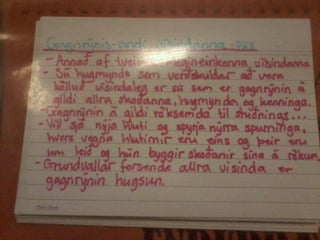 Gagnrýnis-andi vísindanna
- Annað af tveimur megineinkenna vísindanna
- Sú hugmynd sem verðskuldar að vera
kölluð vísindaleg er sú sem er gagnrýnin á
gildi allra skoðanna, hugmynda og kenninga.
Gagnrýnin á gildi röksemda til stuðnings...
- Vill sjá nýja hluti og spyrja nýrra spurninga,
hvers vegna hlutirnir eru eins og þeir eru
um leið og hún byggir skoðanir sína á rökum.
- Grundvallar forsenda allra vísinda er
gagnrýnin hugsun.